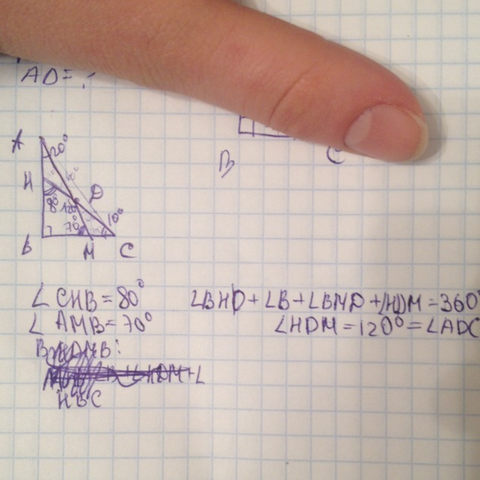 AD = ?
A
20°
H
D
80° 120°
70°
10°
B
M
C
B
C
∠CHB = 80°
∠AMB = 70°
∠BHD + ∠B + ∠BMD + ∠HDM = 360°
∠HDM = 120° = ∠ADC
HBC